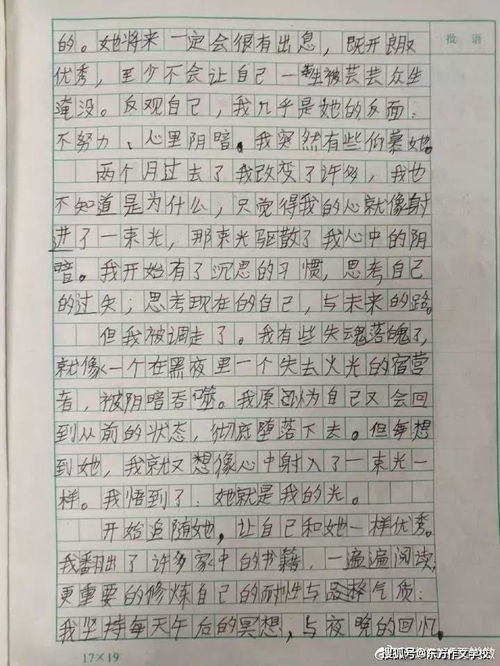 批语
的。她将来一定会很有出息，既开朗又
优秀，至少不会让自己一生被芸芸众生
淹没。反观自己，我几乎是她的反面：
不努力、心里阴暗。我突然有些自羡慕她。
两个月过去了我改变了许多，我也
不知道是为什么，只觉得我的心就像射
进了一束光，那束光驱散了我心中的阴
暗。我开始有了沉思的习惯，思考自己
的过失；思考现在的自己，与未来的路。
但我被调走了。我有些失魂落魄了，
就像一个在黑夜里一个失去火光的宿营
者，被阴暗吞噬。我原以为自己又会回
到从前的状态，彻底堕落下去。但每想
到她，我就又想像心中射入了一束光一
样。我悟到了：她就是我的光。
开始追随她，让自己和她一样优秀。
我翻出了许多家中的书籍，一遍遍阅读，
更重要的修炼自己的耐性与气质：
我坚持每天午后的冥想，与夜晚的回忆。
17×19
搜狐号@东方作文学校